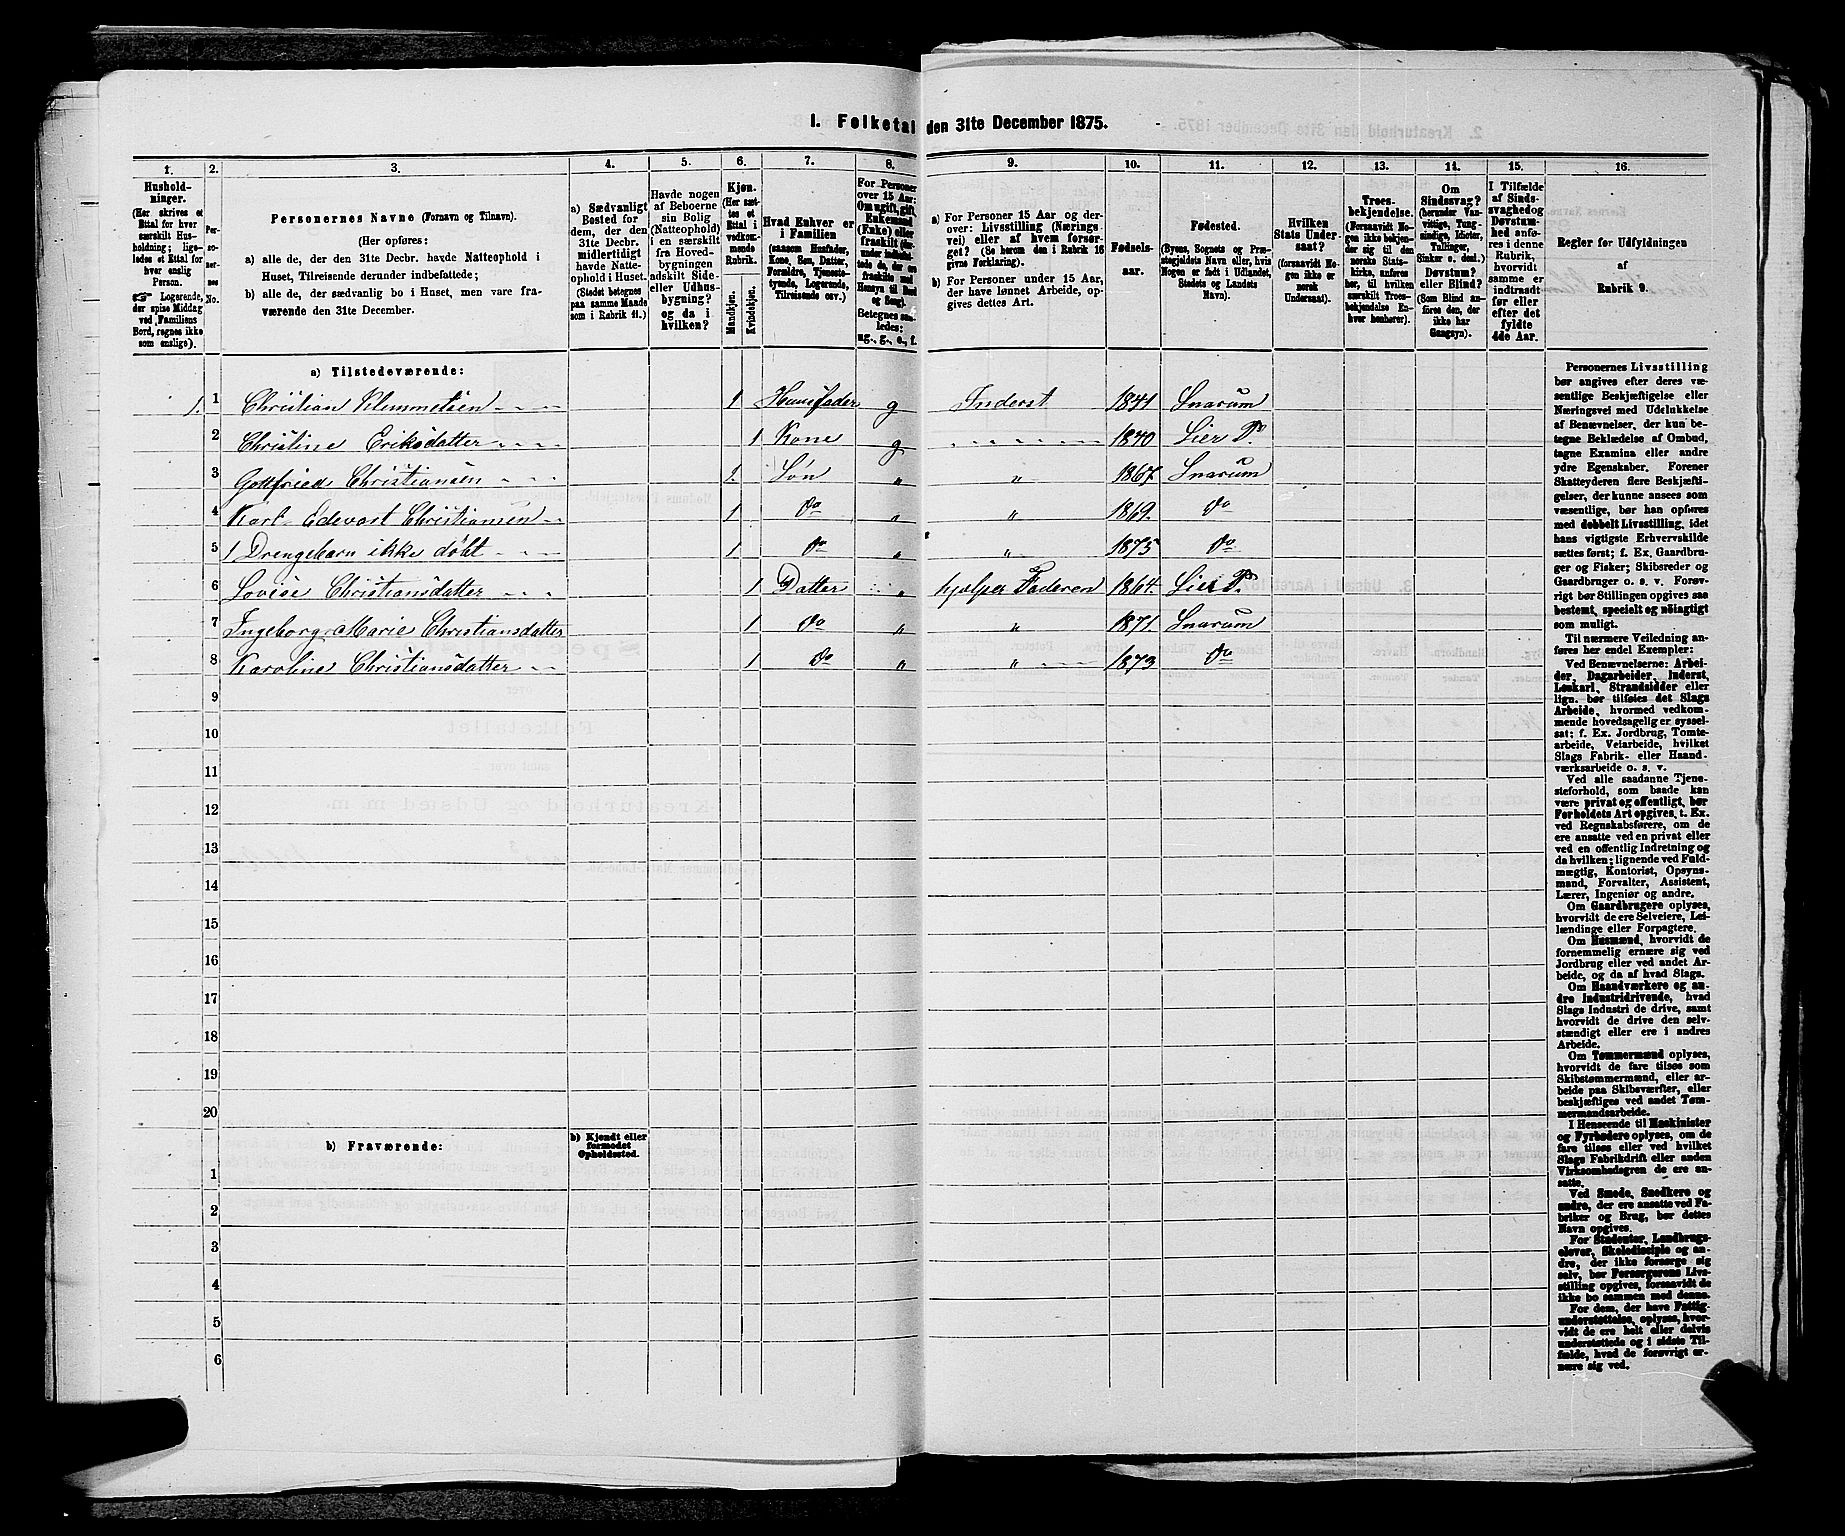 1. Folketal den 31te December 1875.
1. 2. 3. 4. 5. 6. 7. 8. 9. 10. 11. 12. 13. 14. 15. 16.
Hushold-
ninger.
(Her skrives et
Ettal for hver
særskilt Hus-
holdning; lige-
ledes et Ettal
for hver
enslig
Person.
Logerende,
der spise Middag
ved Familiens
Bord, regnes ikke
som enslige).
Per-
so-
ner-
nes
No.
Personernes Navne (Fornavn og Tilnavn).
(Her opføres:
a) alle de, der den 31te Decbr. havde Natteophold i
Huset, Tilreisende derunder indbefattede;
b) alle de, der sædvanlig bo i Huset, men vare fra-
værende den 31te December.
a) Sædvanligt
Bosted for
dem, der den
31te Decbr.
midlertidigt
havde Natte-
ophold i Huset.
(Stedet betegnes
paa samme Maade
som i Rubrik 11.)
Havde nogen
af Beboerne
sin Bolig
(Natteophold)
i en særskilt
fra Hoved-
bygningen
adskilt Side-
eller Udhus-
bygning?
og da i
hvilken?
Kjøn.
(Her sæt-
tes et
Ettal i
vedkom-
mende
Rubrik.
Mandkjøn.
Kvindekjøn.
Hvad Enhver er
i Familien
(saasom Husfader,
Kone, Søn, Datter,
Forældre, Tjeneste-
tyende, Logerende,
Tilreisende osv.)
For Personer
over 15 Aar:
Om ugift, gift,
Enkemand
(Enke) eller
fraskilt
Betegnes saa-
ledes:
ug., g., e., f.
a) For Personer 15 Aar og der-
over: Livsstilling (Nærings-
vei) eller af hvem forsør-
get? (Se herom den i Rubrik 16
givne Forklaring).
b) For Personer under 15 Aar,
der have lønnet Arbeide, op-
gives dettes Art.
Fødsels-
aar.
Fødested.
(Byens, Sognets og Præ-
stegjeldets Navn eller, hvis
Nogen er født i Udlandet,
Stedets og Landets
Navn).
Hvilken
Stats Under-
saat?
(forsaavidt No-
gen ikke er
norsk
Undersaat).
Troes-
bekjendelse.
(Forsaavidt No-
gen ikke bekjen-
der sig til den
norske Stats-
kirke, anføres
her, til hvilken
særskilt Troes-
bekjendelse En-
hver henhører).
Om
Sindssvag?
(herunder Van-
vittige, Tung-
sindige, Idioter,
Tullinger,
Sinker o. desl.)
Døvstum?
eller Blind?
(Som Blind an-
føres den, der
ikke har
Gangsyn).
I Tilfælde
af Sinds-
svaghed og
Døvstum-
hed anfø-
res i denne
Rubrik,
hvorvidt
samme er
indtraadt
før eller
efter det
fyldte
4de Aar.
Regler for Udfyldningen
af
Rubrik 9.
a) Tilstedeværende:
1. 1 Christian Klemmetsen 1 Huusfader g Inderst 1841 Snarum
2 Christine Eriksdatter 1 Kone g 1840 Lier Pr.
3 Gottfried Christiansen 1. Søn „ „ 1867. Snarum
4 Karl Edevart Christiansen 1 do „ „ 1869. do
5 1 Drengebarn ikke døbt 1 do „ „ 1875 do
6 Lovise Christiansdatter 1 Datter „ hjælper Faderen 1864. Lier Pr.
7 Ingeborg Marie Christiansdatter 1 do „ „ 1871. Snarum
8 Karoline Christiansdatter 1 do „ „ 1873 do
9
10
11
12
13
14
15
16
17
18
19
20
b) Fraværende:
b) Kjendt eller
formodet
Opholdssted.
1
2
3
4
5
6
Personernes Livsstilling
bør angives efter deres væ-
sentlige Beskjæftigelse eller
Næringsvei med Udelukkelse
af Benævnelser, der kun be-
tegne Beklædelse af Ombud,
tagne Examina eller andre
ydre Egenskaber. Forener
Skatteyderen flere Beskjæfti-
gelser, der kunne ansees som
væsentlige, bør han opføres
med dobbelt Livsstilling, idet
hans vigtigste Erhvervskilde
sættes først; f. Ex. Gaardbru-
ger og Fisker; Skibsreder og
Gaardbruger o. s. v. Forøv-
rigt bør Stillingen opgives saa
bestemt, specielt og nøiagtigt
som muligt.
Til nærmere Veiledning an-
føres her endel Exempler:
Ved Benævnelserne: Arbei-
der, Dagarbeider, Inderst,
Løskarl, Strandsidder eller
lign. bør tilføies det Slags
Arbeide, hvormed vedkom-
mende hovedsagelig er syssel-
sat; f. Ex. Jordbrug, Tomte-
arbeide, Veiarbeide, hvilket
Slags Fabrik- eller Haand-
værksarbeide o. s. v.
Ved alle saadanne Tjene-
steforhold, som baade kan
være privat og offentligt, bør
Forholdets Art opgives, t. Ex.
ved Regnskabsførere, om de
ere ansatte ved en privat eller
ved en offentlig Indretning og
da hvilken; lignende ved Fuld-
mægtig, Kontorist, Opsyns-
mand, Forvalter, Assistent,
Lærer, Ingeniør og andre.
Om Gaardbrugere oplyses,
hvorvidt de ere Selveiere, Lei-
lændinge eller Forpagtere.
Om Husmænd, hvorvidt de
fornemmelig ernære sig ved
Jordbrug eller ved andet Ar-
beide, og da af hvad Slags.
Om Haandværkere og an-
dre Industridrivende, hvad
Slags Industri de drive, samt
hvorvidt de drive den selv-
stændigt eller ere i andres
Arbeide.
Om Tømmermænd oplyses,
hvorvidt de fare tilsøs som
Skibstømmermænd, eller ar-
beide paa Skibsværfter, eller
beskjæftiges ved andet Tøm-
mermandsarbeide.
I Henseende til Maskinister
og Fyrbødere oplyses, om de
fare tilsøs eller ved hvilket
Slags Fabrikdrift eller anden
Virksomhedsgren de ere an-
satte.
Ved Smede, Snedkere og
andre, der ere ansatte ved Fa-
briker og Brug, bør dettes
Navn opgives.
For Studenter, Landbrugs-
elever, Skoledisciple og an-
dre, der ikke forsørge sig
selv, bør Forsørgerens Livs-
stilling opgives, forsaavidt de
ikke bo sammen med denne.
For dem, der have Fattig-
understøttelse, oplyses, hvor-
vidt de ere helt eller delvis
understøttede og i sidste Til-
fælde, hvad de forøvrigt er-
nære sig ved.